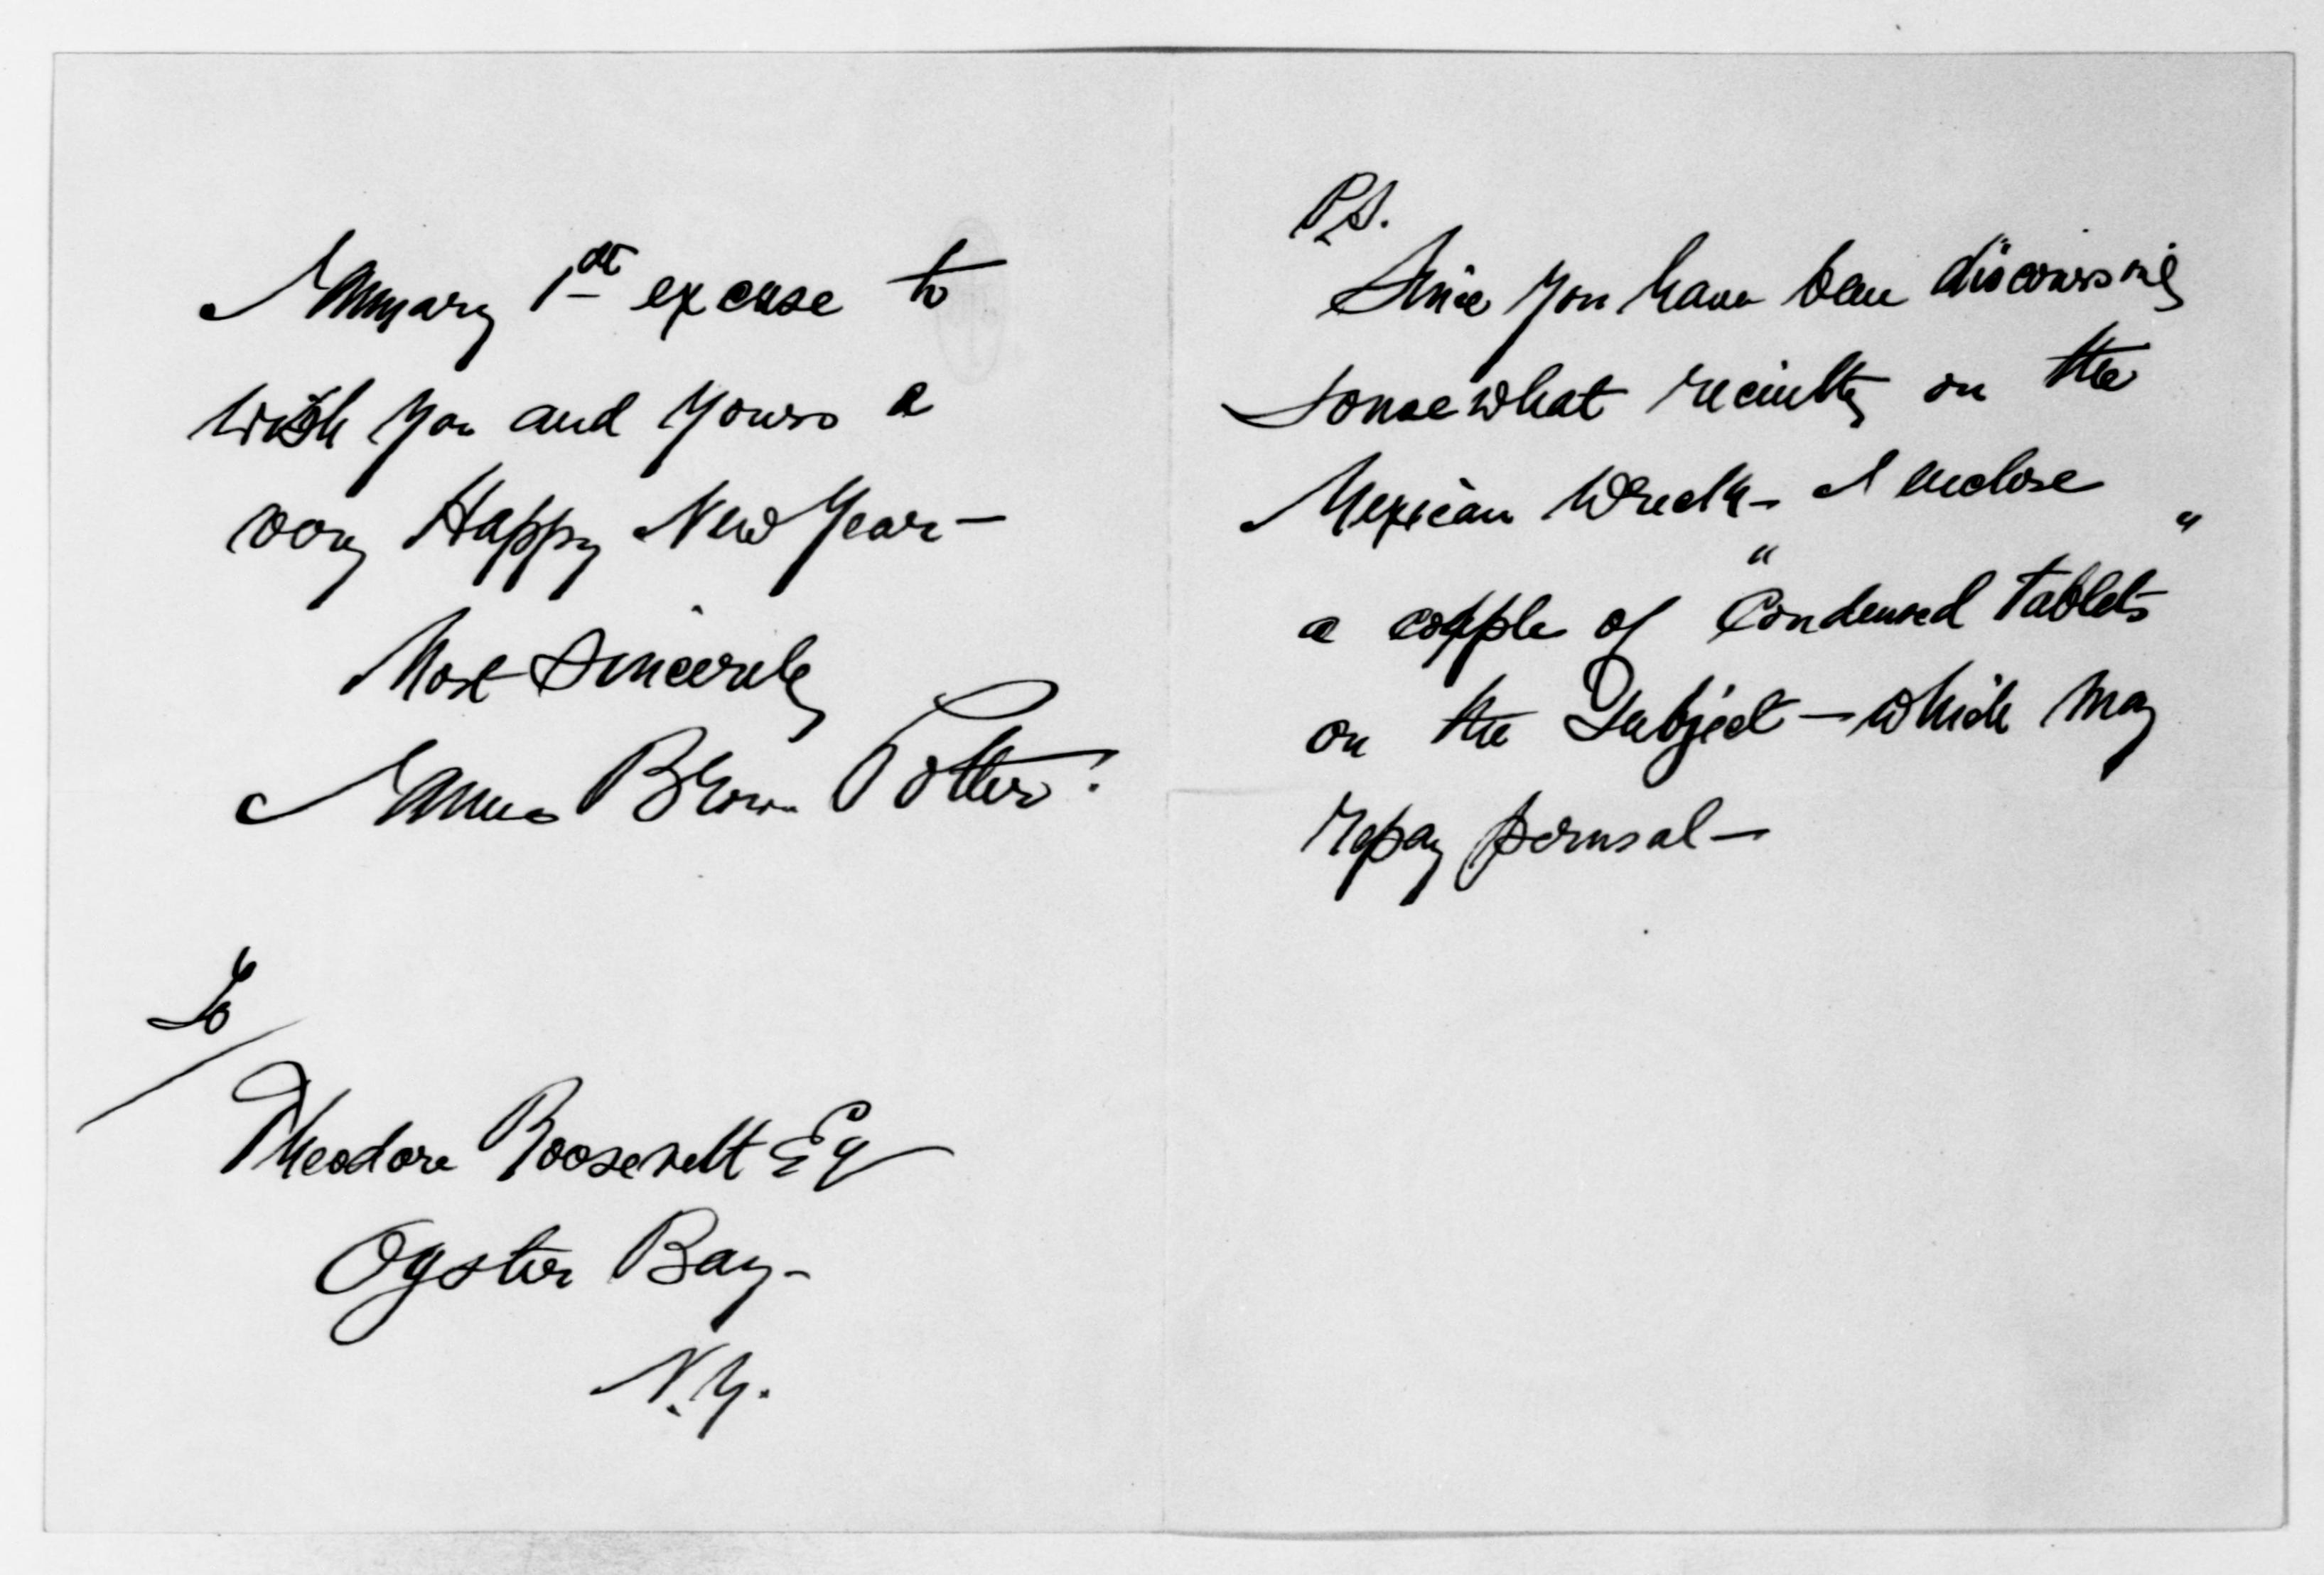 January 1st excuse to
wish you and yours a
very Happy New Year —
Most Sincerely
James Brown Potter.
To
Theodore Roosevelt Esq
Oyster Bay -
N.Y.
P.S.
Since you have been discoursing
somewhat recently on the
Mexican Wreck - I enclose
a couple of "Condensed Tablets"
on the Subject — which may
repay perusal —